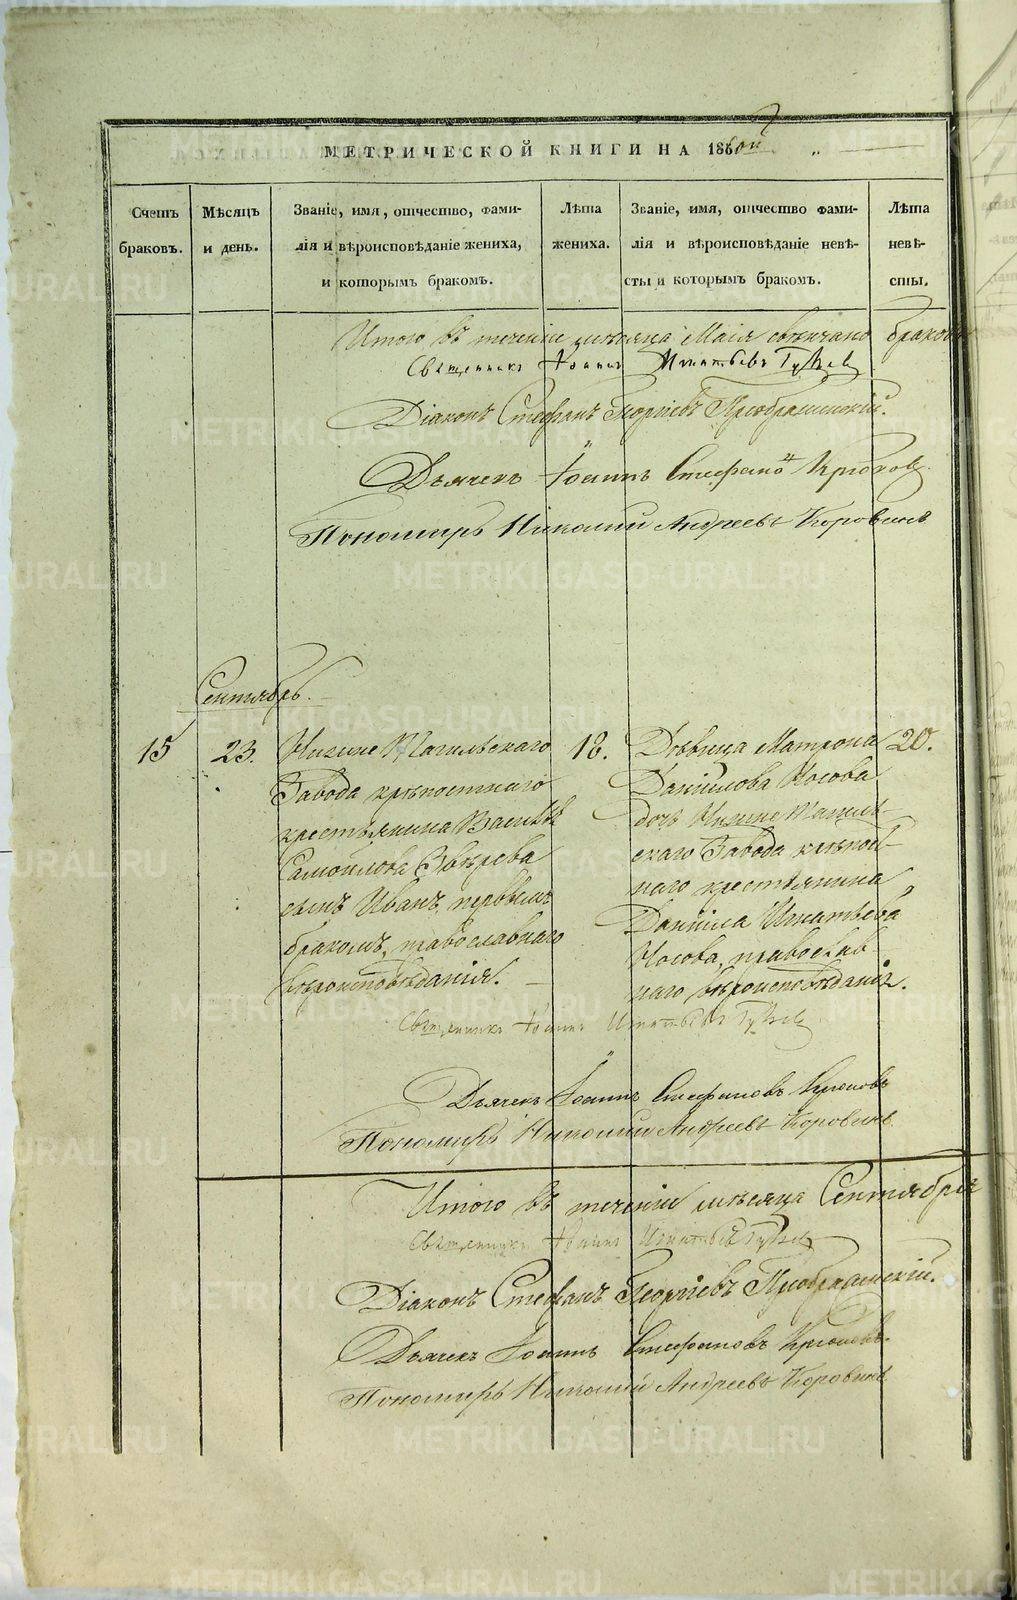 МЕТРИЧЕСКОЙ КНИГИ НА 1860й
Счетъ браковъ.
Мѣсяцъ и день.
Званіе, имя, отчество, фами-
лія и вѣроисповѣданіе жениха,
и которымъ бракомъ.
Лѣта жениха.
Званіе, имя, отчество фами-
лія и вѣроисповѣданіе невѣ-
сты и которымъ бракомъ.
Лѣта невѣ-
сты.
Итого въ теченіе мѣсяца Маія свѣнчано браковъ
Священникъ Іоаннъ Игнатьевъ
Діаконъ Стефанъ Георгіевъ Преображенскій.
Дьячекъ Іоаннъ Стефановъ Крюковъ.
Пономарь Николай Андреевъ Коровинъ
Сентябрь.
15
23.
Нижне Тагильскаго
Завода крѣпостнаго
крестьянина Василья
Самойлова Звѣрева
сынъ Иванъ, первымъ
бракомъ, православнаго
вѣроисповѣданія.
18.
Дѣвица Матрона
Даніилова Носова
дочь Нижне Тагиль-
скаго Завода крѣпост-
наго крестьянина
Даніила Игнатьева
Носова, православ-
наго вѣроисповѣданія.
20.
Священникъ Іоаннъ Игнатьевъ
Дьячекъ Іоаннъ Стефановъ Крюковъ
Пономарь Николай Андреевъ Коровинъ
Итого въ теченіи мѣсяца Сентября
Священникъ Іоаннъ Игнатьевъ
Діаконъ Стефанъ Георгіевъ Преображенскій.
Дьячекъ Іоаннъ Стефановъ Крюковъ.
Пономарь Николай Андреевъ Коровинъ
METRIKI.GASO-URAL.RU